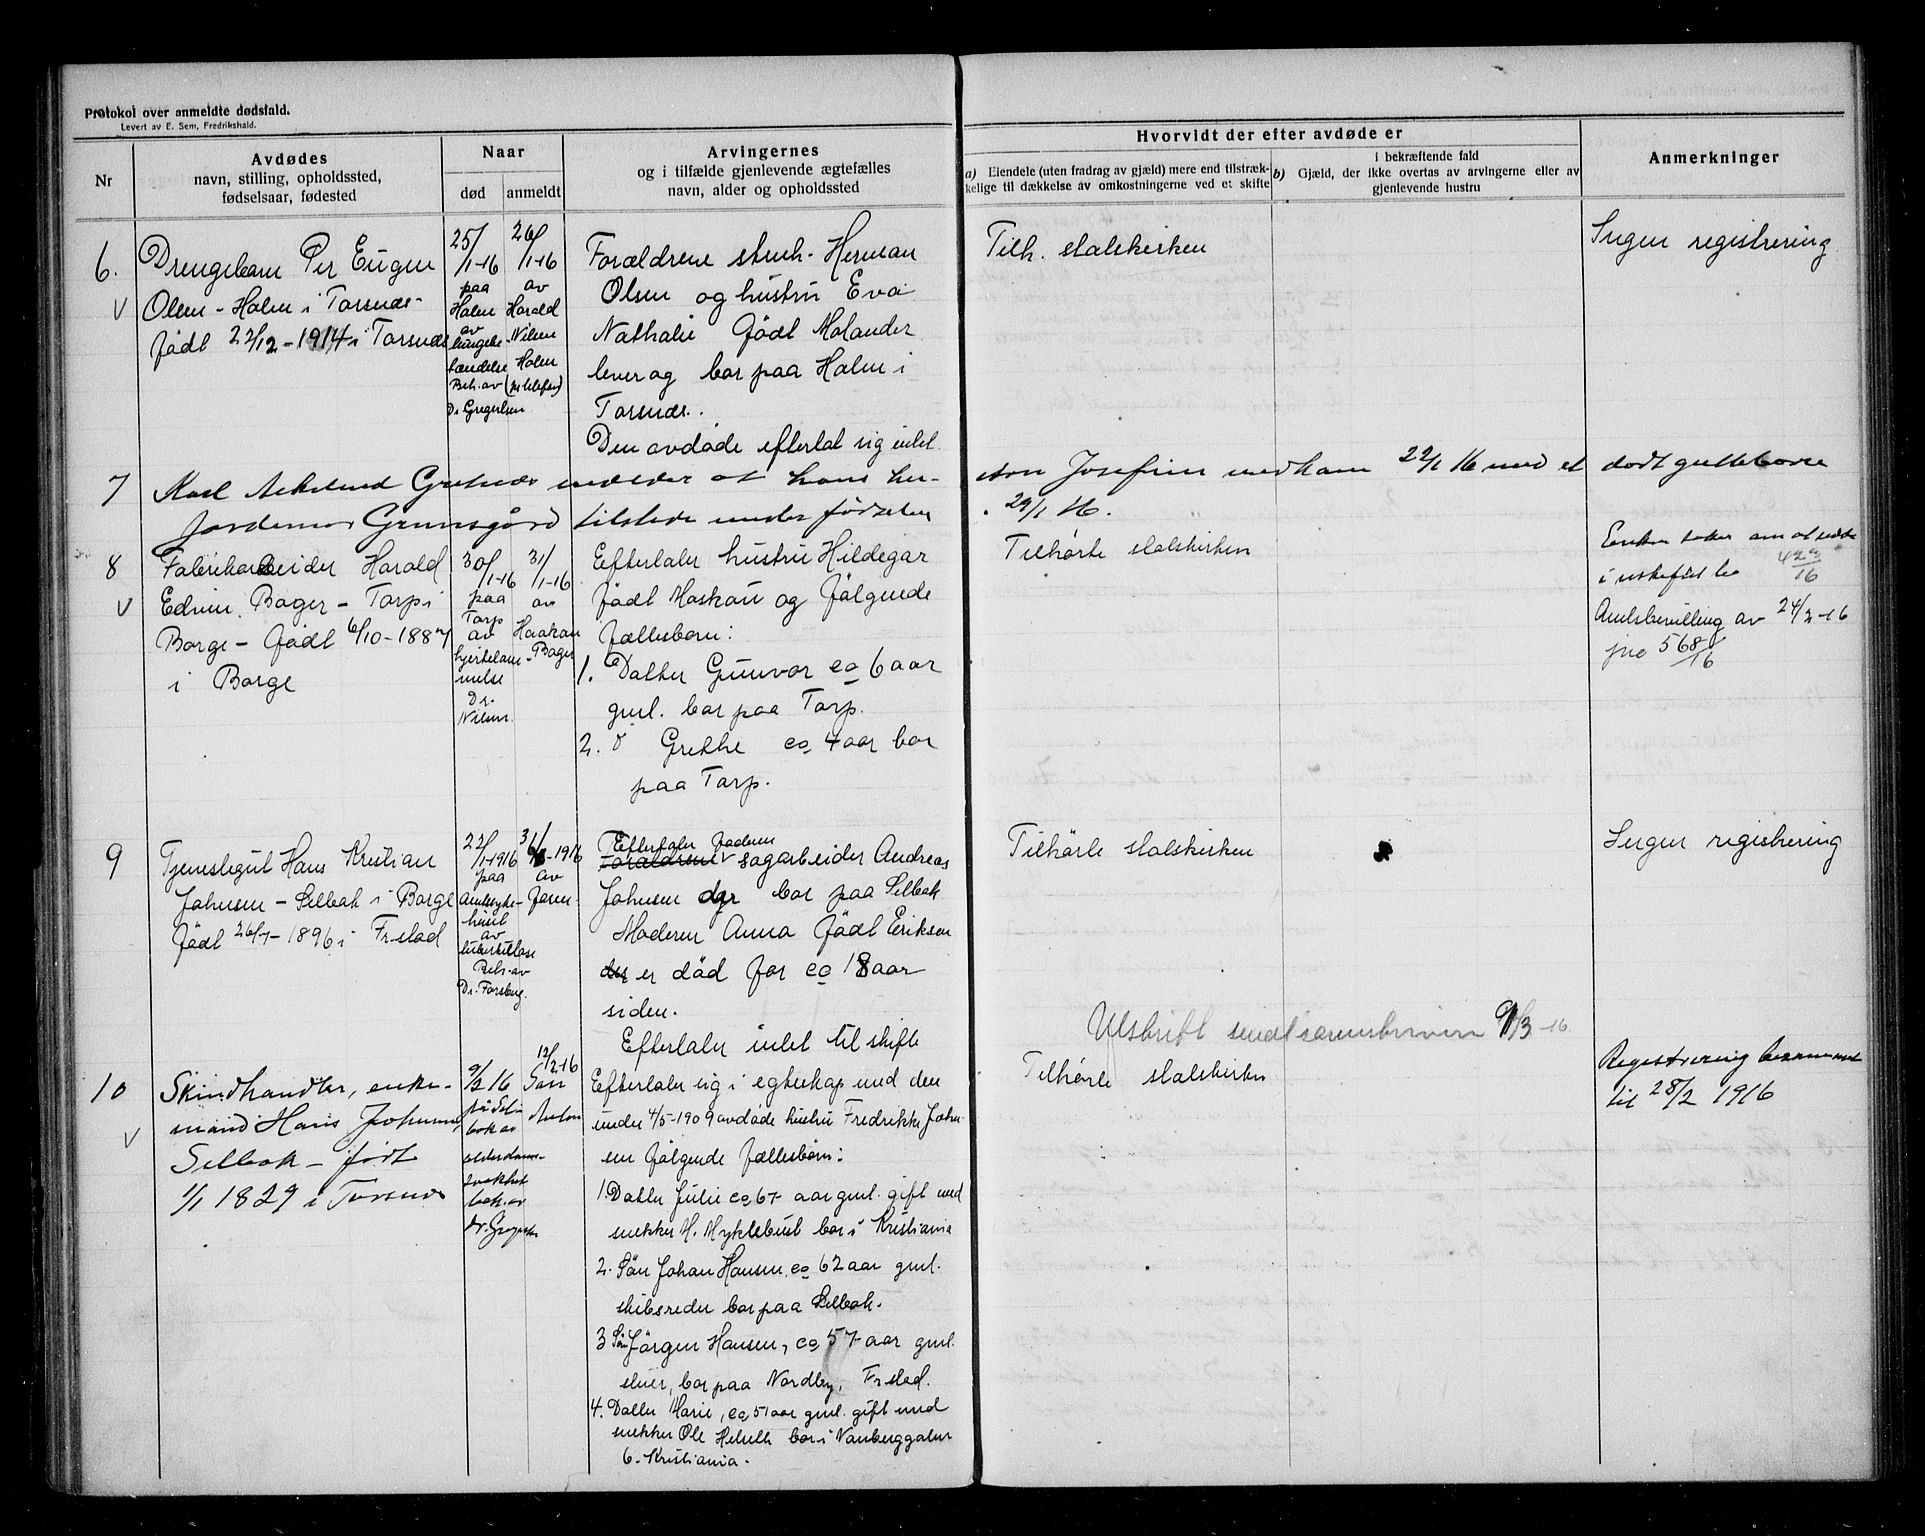 Protokol over anmeldte dødsfald.
Levert av E. Sem, Fredrikshald.
Nr
Avdødes
navn, stilling, opholdssted,
fødselsaar, fødested
Naar
død
anmeldt
Arvingernes
og i tilfælde gjenlevende ægtefælles
navn, alder og opholdssted
Hvorvidt der efter avdøde er
a) Eiendele (uten fradrag av gjæld) mere end tilstræk-
kelige til dækkelse av omkostningerne ved et skifte
i bekræftende fald
b) Gjæld, der ikke overtas av arvingerne eller av
gjenlevende hustru
Anmerkninger
6.
Drengebarn Per Eugen
Olsen - Holm i Torsnæs -
født 22/12 - 1914 i Torsnæs
25/
/1-16
paa
Holm
av
lungebe-
tændelse
Beh. av
Dr. Gregersen
26/
/1-16
av
Harald
Nilsen
Holm
(pr telefon)
Forældrene stenh. Herman
Olsen og hustru Eva
Nathalie født Molander
lever og bor paa Holm i
Torsnæs.
Den avdøde efterlot sig intet
Tilh. statskirken
Ingen registrering
7
Karl Gretnes melder at hans hu-
stru Josefine nedkom 22/1 16 med et dødt guttebarn
jordemor Grimsgård tilstede under fødselen
29/1 16.
8
Fabrikarbeider Harald
Edvin Bager - Torp i
Borge - født 6/10 - 1887
i Borge
30/
/1-16
paa
Torp
av
hjertelam-
melse
Dr.
Nilsen
31/
/1-16
av
Haakon
Bager
Efterlater hustru Hildegar
født Moskau og følgende
fællesbørn:
1. Datter Gunvor ca 6 aar
gml. bor paa Torp.
2. d Grethe ca 4 aar bor
paa Torp.
Tilhørte statskirken
Enken søker om at sidde
i uskiftet bo 429/16
Amtsbevilling av 24/2-16
jno 568/16
9
Tjenestegut Hans Kristian
Johnsen - Selbak i Borge
født 26/7 - 1896 i Fr.stad
22/
/1-1916
paa
Amtssyke-
huset
av
tuberkulose
Beh. av
Dr. Forsberg.
31/
/1-1916
av
faren
Efterlater faderen
Forældrene sagarbeider Andreas
Johnsen der bor paa Selbak
Moderen Anna født Erikson
der er død for ca 18 aar
siden.
Efterlater intet til skifte
Tilhørte statskirken
Ingen registrering
Utskrift sendt 9/3-16
10
Skindhandler, enke-
mand Hans Johnsen,
Selbak - født
1/1 1829 i Torsnes
9/2 16
på Sel-
bak av
alderdoms-
svakhet
beh. av
dr. Gregersen
12/2-16
Søn
Anton
Efterlater sig i egteskap med den
under 4/5-1909 avdøde hustru Fredrikke John-
sen følgende fællesbørn:
1. Datter Julie ca 67 aar gml. gift med
snekker M. Myklebust bor i Kristiania
2. Søn Johan Hansen, ca 62 aar gml.
skibsreder bor paa Selbak.
3 Søn Jørgen Hansen, ca 57 aar gml.
stuer, bor paa Nordby, Fr.stad.
4. Datter Marie, ca 51 aar gml. gift med
snekker Ole Helseth bor i
6. Kristiania.
Tilhørte statskirken
Registrering berammet
til 28/2 1916